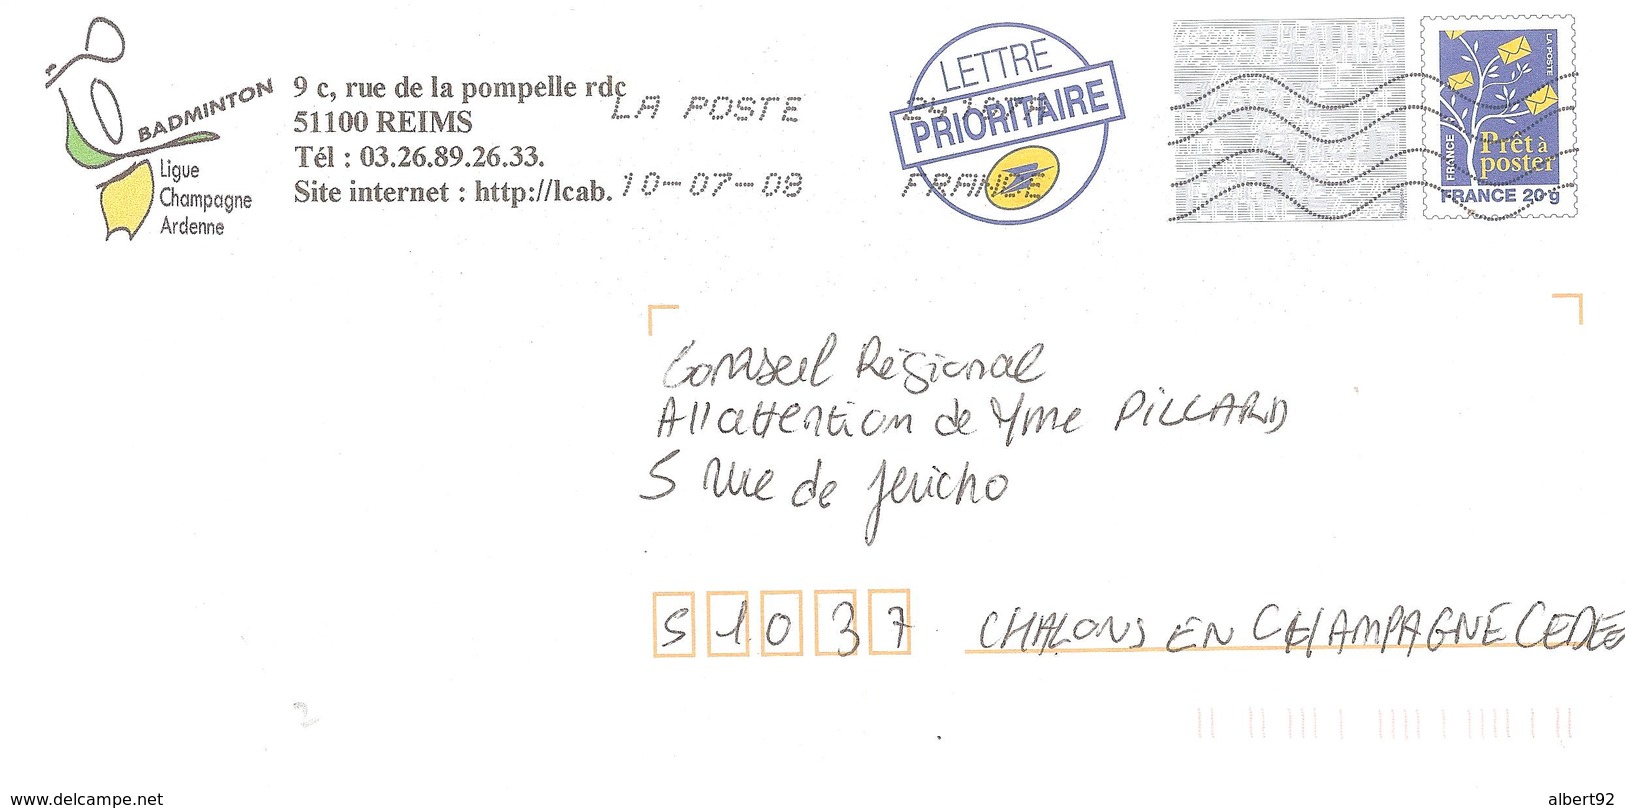 BADMINTON
Ligue
Champagne
Ardenne
9 c, rue de la pompelle rdc
51100 REIMS
Tél : 03.26.89.26.33.
Site internet : http://lcab.
LA POSTE
10-07-08
FRANCE
LETTRE
PRIORITAIRE
LA POSTE
FRANCE
Prêt à
poster
FRANCE 20 g
Conseil Régional
A ll attention de Mme PILLARD
5 rue de Jericho
51037 CHALONS EN CHAMPAGNE CEDEX
2
www.delcampe.net
albert92